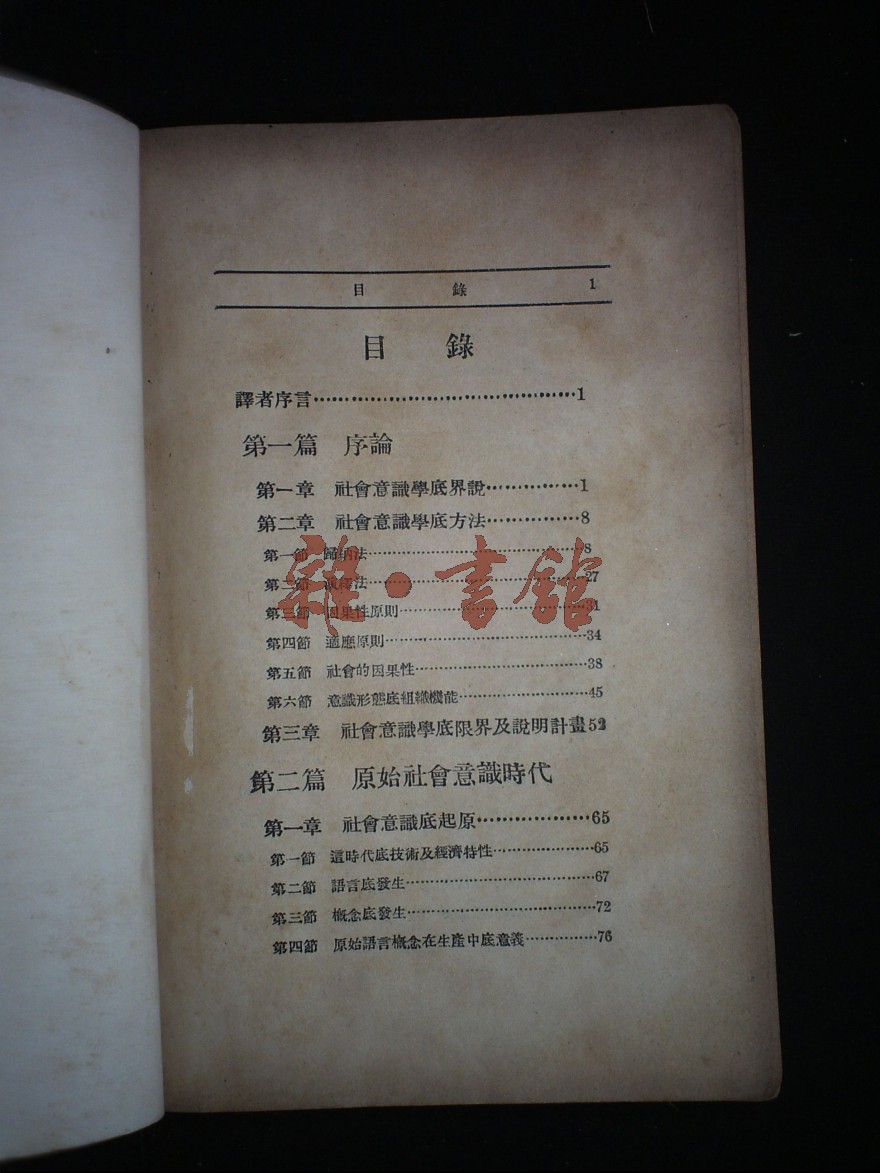 目 錄 1
目 錄
譯者序言……………………………………1
第一篇 序論
第一章 社會意識學底界說……………1
第二章 社會意識學底方法……………8
第一節 歸納法……………………………8
第二節 演繹法……………………………27
第三節 因果性原則………………………31
第四節 適應原則…………………………34
第五節 社會的因果性……………………38
第六節 意識形態底組織機能……………45
第三章 社會意識學底限界及說明計畫52
第二篇 原始社會意識時代
第一章 社會意識底起原………………65
第一節 這時代底技術及經濟特性………65
第二節 語言底發生………………………67
第三節 概念底發生………………………72
第四節 原始語言概念在生產中底意義……76
雜·書館